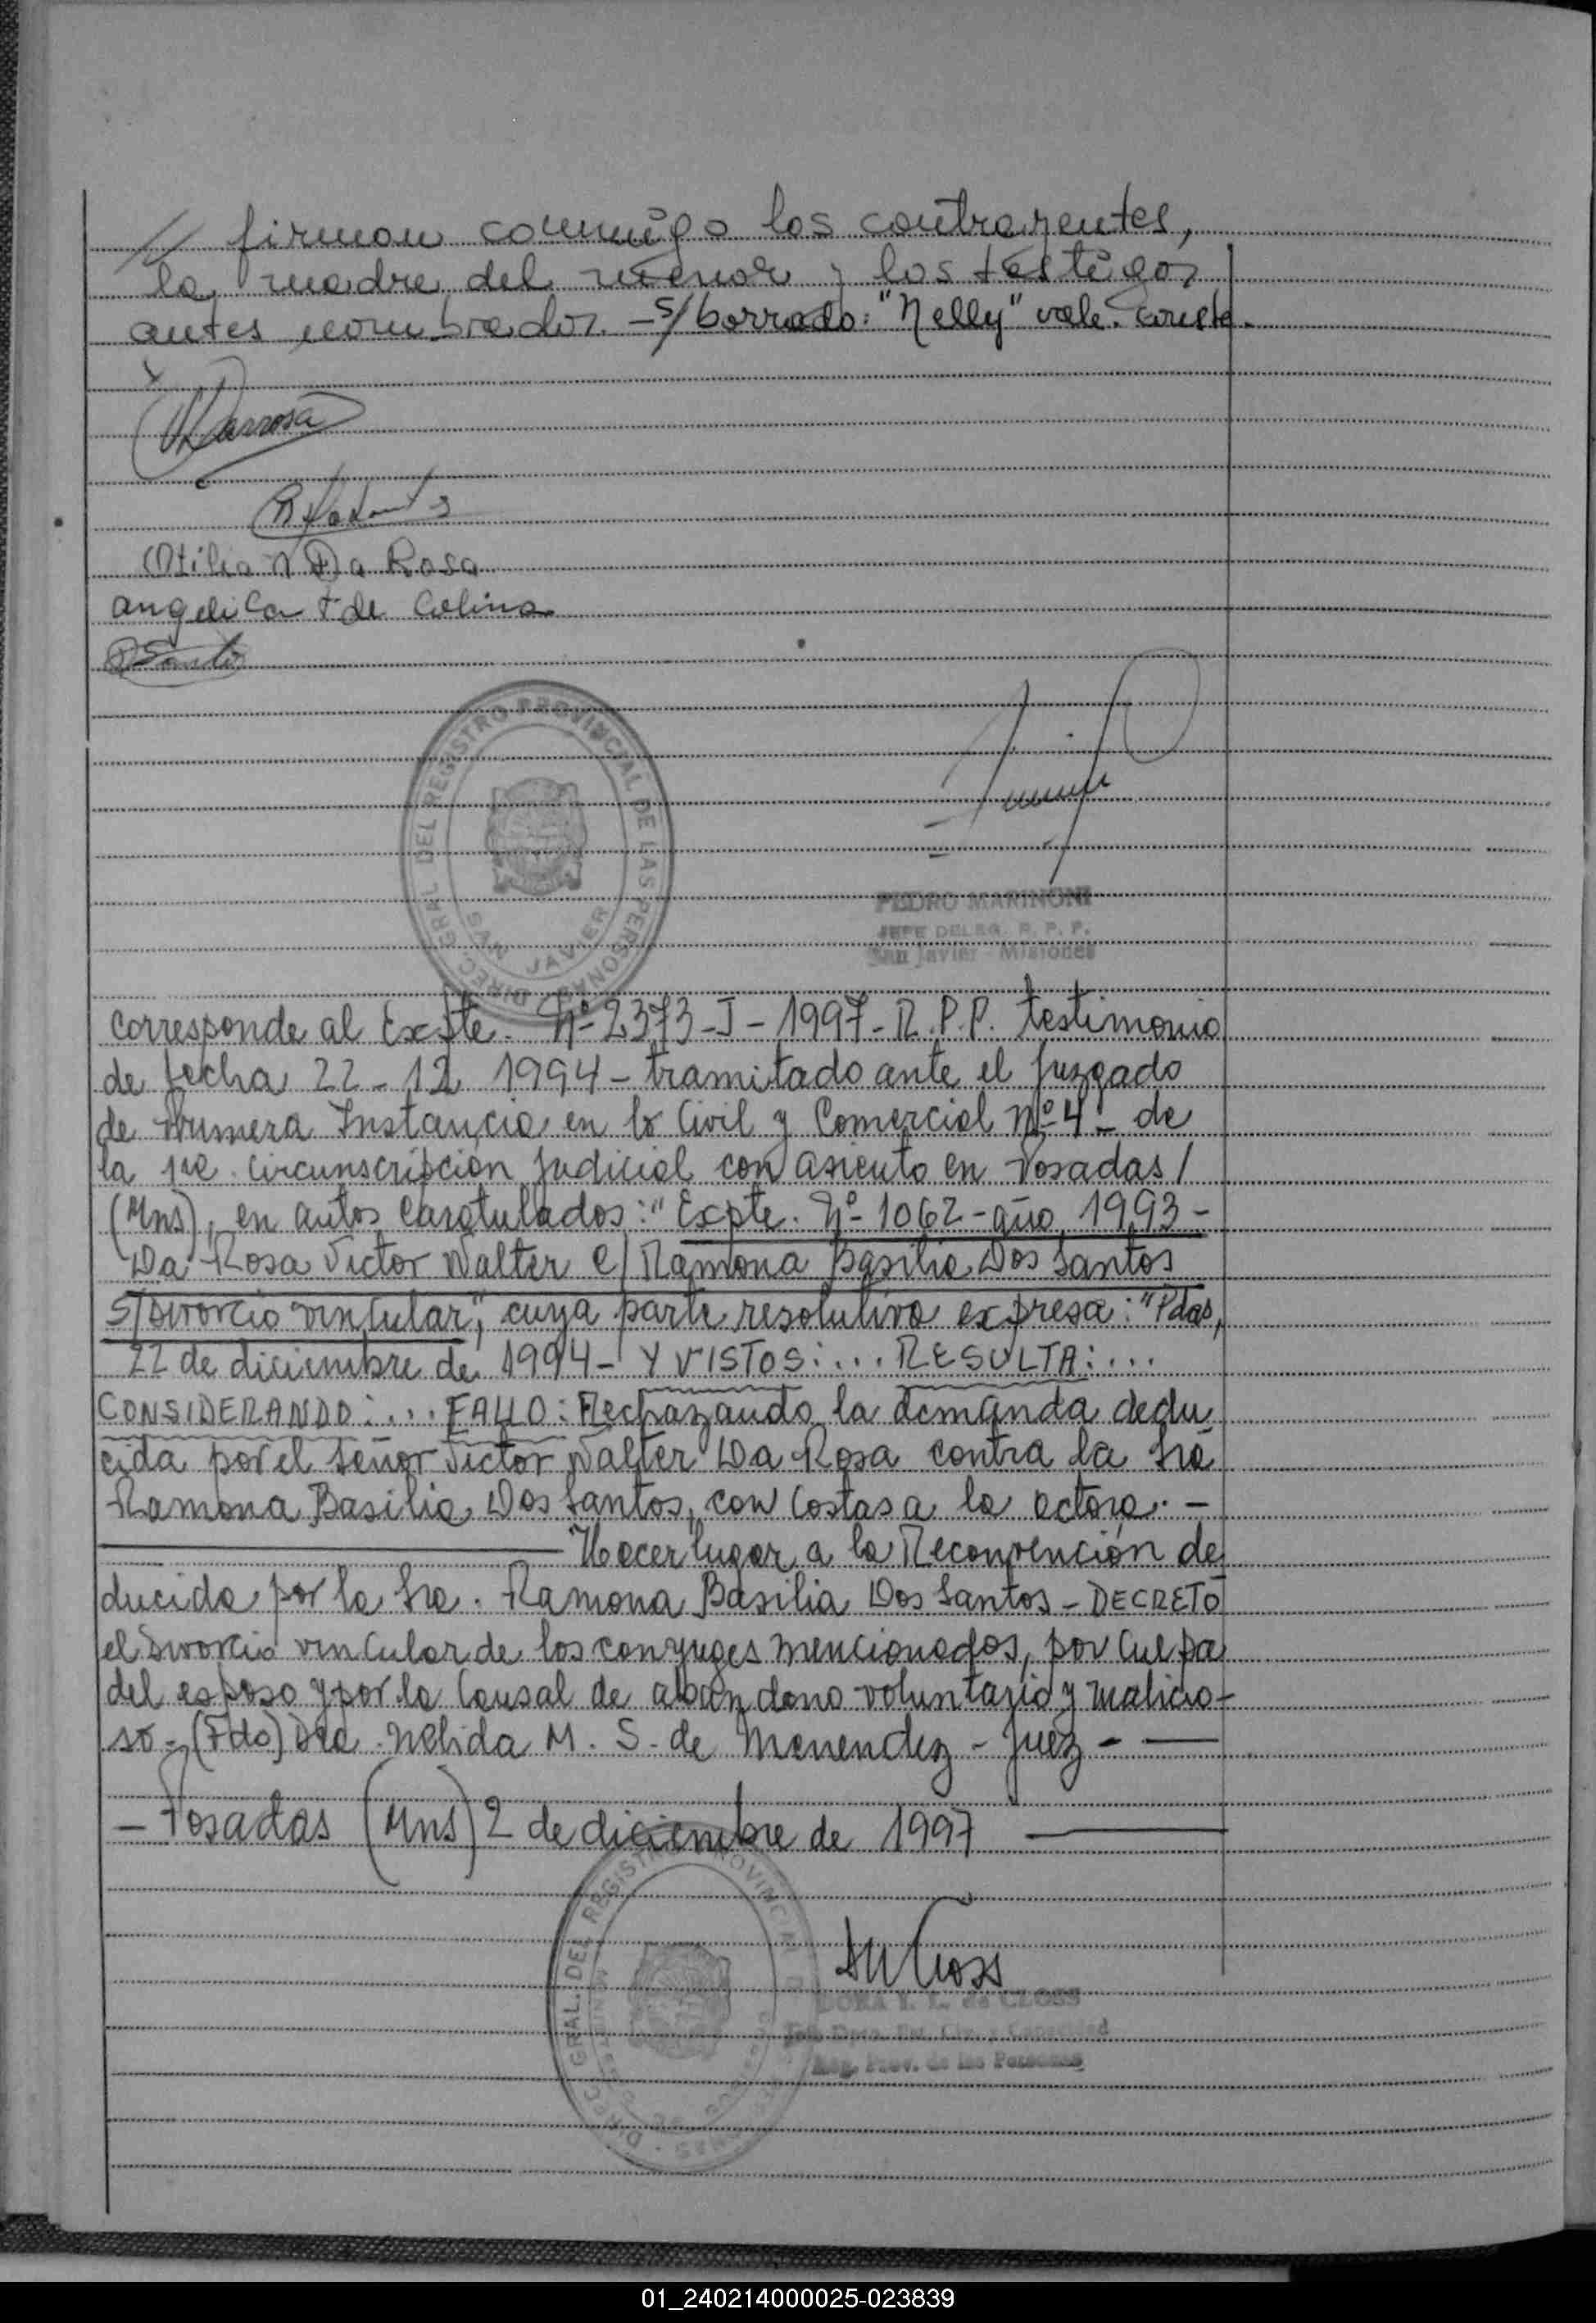 // firman conmigo los contrayentes,
la madre del menor y los testigos
antes nombrados. - s/borrado: "Nelly" vale. conste.
Otilia N Da Rosa
Angelica F de Colina
DIREC. GRAL. DEL REGISTRO PROVINCIAL DE LAS PERSONAS
SAN JAVIER
PEDRO MARINONI
JEFE DELEG. R. P. P.
San Javier - Misiones
Corresponde al Expte. Nº 2373-J-1997-R.P.P. testimonio
de fecha 22-12 1994 - tramitado ante el Juzgado
de Primera Instancia en lo Civil y Comercial Nº 4 - de
la 1ra. Circunscripcion Judicial con asiento en Posadas /
(Mns), en autos Caratulados: "Expte. Nº 1062 - año 1993 -
Da Rosa Victor Walter C/ Ramona Basilia Dos Santos
S/Divorcio vincular", cuya parte resolutiva expresa: "Pdas,
22 de diciembre de 1994 - Y VISTOS: .... RESULTA: ...
CONSIDERANDO: .... FALLO: Rechazando la demanda dedu
cida por el señor Victor Walter Da Rosa contra la Sra
Ramona Basilia Dos Santos, con Costas a la actora. -
Hacer lugar a la Reconvención de
ducida por la Sra. Ramona Basilia Dos Santos - DECRETO
el Divorcio vincular de los conyuges mencionados, por Culpa
del esposo y por la Causal de abandono voluntario y malicio-
so - (Fdo) Dra. Nelida M. S. de Menendez - Juez -
- Posadas (Mns) 2 de diciembre de 1997
DIREC. GRAL. DEL REGISTRO PROVINCIAL
DORA I. L. de CLOSS
Reg. Prov. de las Personas
01_240214000025-023839